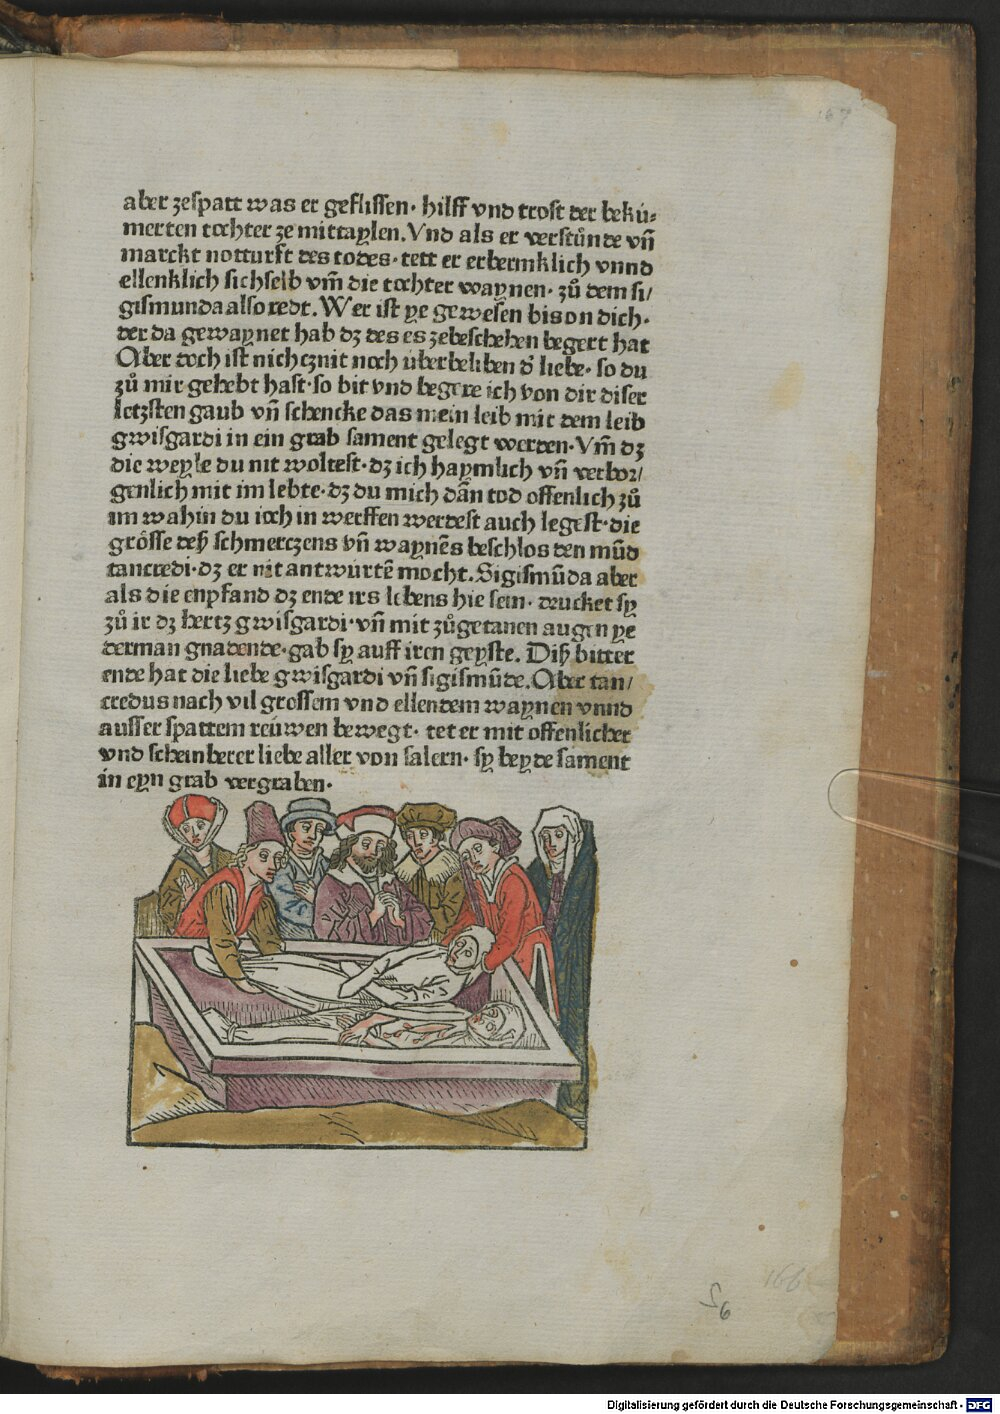 167
aber zespatt was er geflissen· hilff vnd trost der bekú⸗
merten tochter ze mittaylen. Vnd als er verstůnde vñ
marckt notturft des todes· tett er erbermklich vnnd
ellenklich sichselb vm̃ die tochter waynen· zů dem si/
gismunda also redt. Wer ist ye gewesen bis on dich·
der da gewaynet hab dz des es zebeschehen begert hat
Aber doch ist nichcznit noch úberbeliben dˀ liebe· so du
zů mir gehebt hast· so bit vnd begere ich von dir diser
letzsten gaub vñ schencke das mein leib mit dem leib
gwisgardi in ein grab sament gelegt werden· Vm̃ dz
die weyle du nit woltest· dz ich haymlich vñ verbor/
genlich mit im lebte· dz du mich dãn tod offenlich zů
im wahin du ioch in werffen werdest auch legest· die
grősse deß schmerczens vñ waynẽs beschlos den mũd
tancredi· dz er nit antwúrtẽ mocht. Sigismũda aber
als die enpfand dz ende irs lebens hie sein· drucket sy
zů ir dz hertz gwisgardi· vñ mit zůgetanen augen ye
derman gnadende· gab sy auff iren geyste. Diß bitter
ende hat die liebe gwisgardi vñ sigismũde. Aber tan/
credus nach vil grossem vnd ellendem waynen vnnd
ausser spattem reúwen bewegt· tet er mit offenlicher
vnd scheinberer liebe aller von salern· sy beyde sament
in eyn grab vergraben·
166
S6
Digitalisierung gefördert durch die Deutsche Forschungsgemeinschaft - DFG